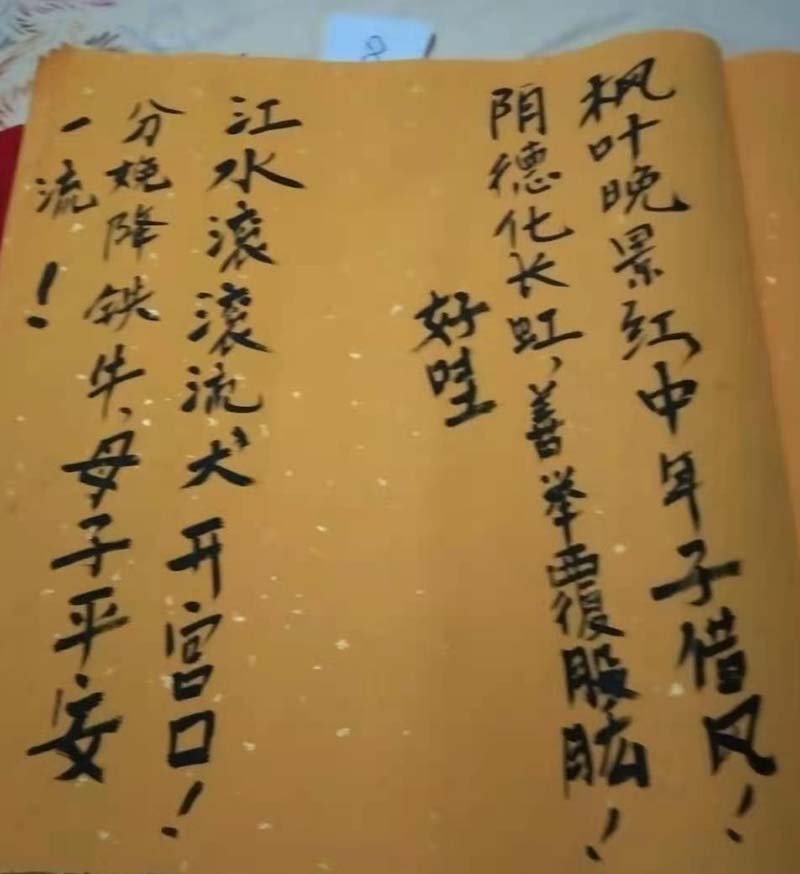 枫叶晚景红中年子借风！
阴德化长虹，善举覆股肱！
好哇
江水滚滚流犬开宫口！
分娩降铁牛，母子平安
一流！